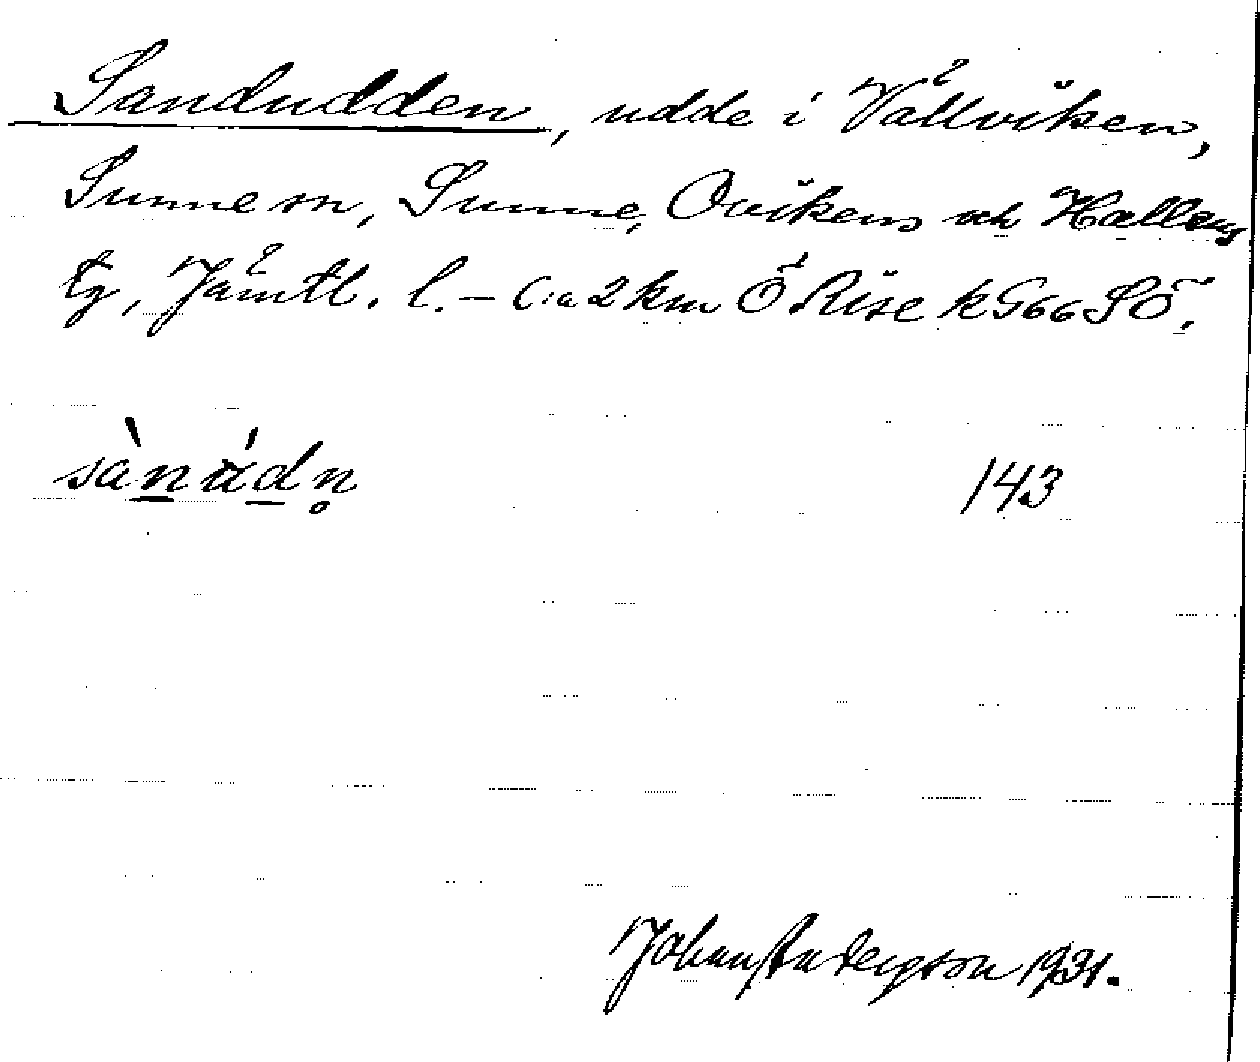 Sandudden, udde i Vällviken,
Sunne sn, Sunne, Ovikens och Hallens
tg, Jämtl. l. – Ca 2 km Ö Rise k G66 SÖ.
sànúdn̥ 143
Johan Anderson 1931.